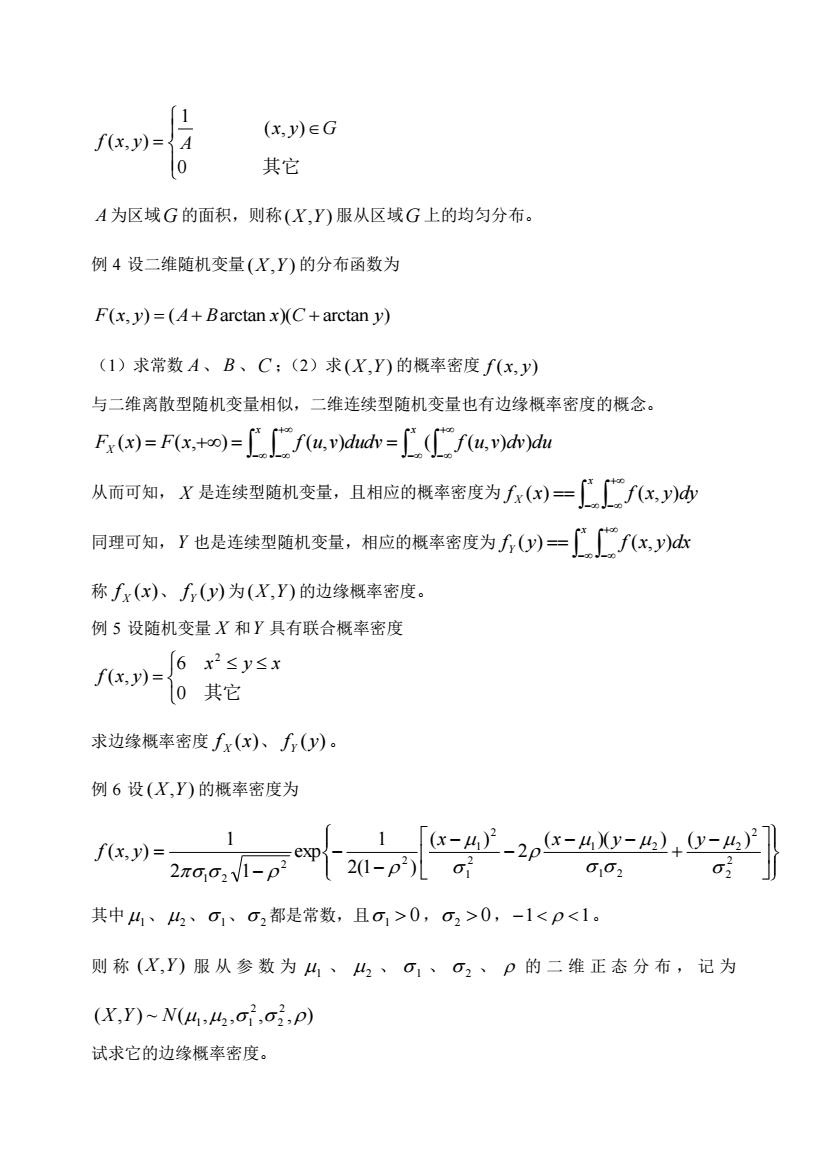 f(x,y) = { 1/A (x,y)∈G
0 其它
A 为区域 G 的面积，则称 (X,Y) 服从区域 G 上的均匀分布。
例 4 设二维随机变量 (X,Y) 的分布函数为
F(x,y) = (A + B arctan x)(C + arctan y)
（1）求常数 A 、 B 、 C ；（2）求 (X,Y) 的概率密度 f(x,y)
与二维离散型随机变量相似，二维连续型随机变量也有边缘概率密度的概念。
F_X(x) = F(x,+∞) = ∫_{-∞}^{x} ∫_{-∞}^{+∞} f(u,v)dudv = ∫_{-∞}^{x} (∫_{-∞}^{+∞} f(u,v)dv)du
从而可知， X 是连续型随机变量，且相应的概率密度为 f_X(x) == ∫_{-∞}^{x} ∫_{-∞}^{+∞} f(x,y)dy
同理可知，Y 也是连续型随机变量，相应的概率密度为 f_Y(y) == ∫_{-∞}^{x} ∫_{-∞}^{+∞} f(x,y)dx
称 f_X(x)、 f_Y(y) 为 (X,Y) 的边缘概率密度。
例 5 设随机变量 X 和 Y 具有联合概率密度
f(x,y) = { 6 x² ≤ y ≤ x
0 其它
求边缘概率密度 f_X(x)、 f_Y(y) 。
例 6 设 (X,Y) 的概率密度为
f(x,y) = 1/(2πσ₁σ₂√(1−ρ²)) exp{ −1/(2(1−ρ²)) [ (x−μ₁)²/σ₁² − 2ρ (x−μ₁)(y−μ₂)/(σ₁σ₂) + (y−μ₂)²/σ₂² ] }
其中 μ₁ 、 μ₂ 、 σ₁ 、 σ₂ 都是常数，且 σ₁ > 0 ， σ₂ > 0 ， −1 < ρ < 1 。
则 称 (X,Y) 服 从 参 数 为 μ₁ 、 μ₂ 、 σ₁ 、 σ₂ 、 ρ 的 二 维 正 态 分 布 ， 记 为
(X,Y) ~ N(μ₁,μ₂,σ₁²,σ₂²,ρ)
试求它的边缘概率密度。